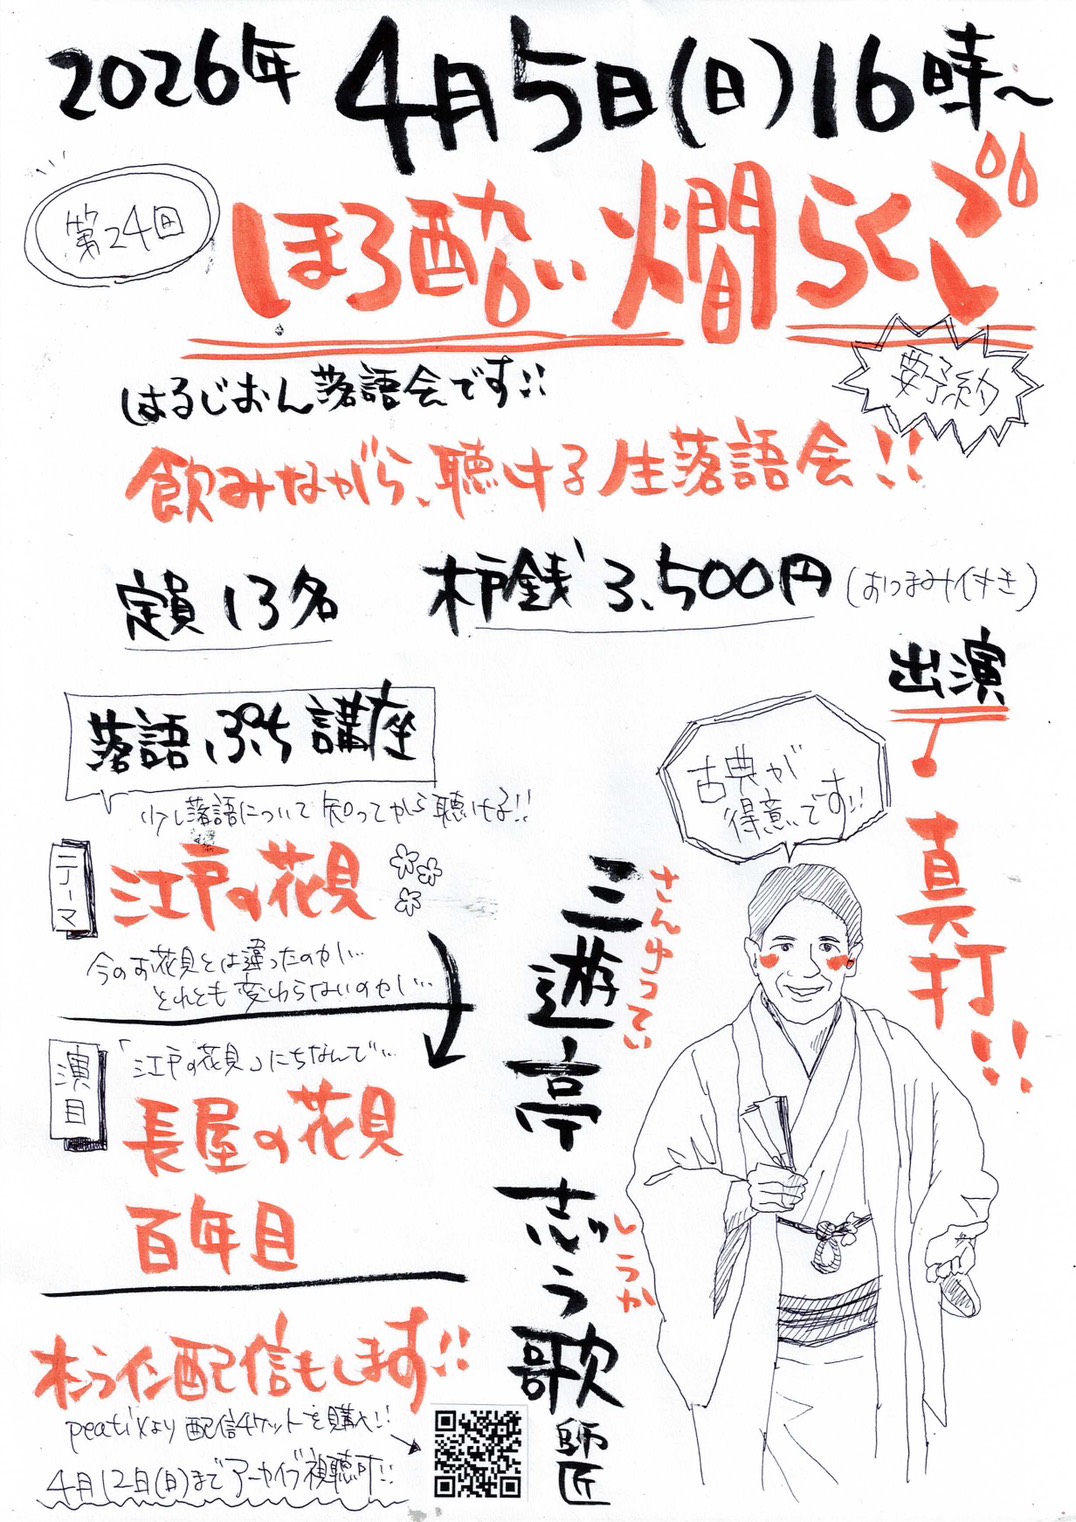 2026年 4月5日(日)16時〜
第24回
ほろ酔い 燗らくご
要予約
はるじおん落語会です!!
飲みながら、聴ける生落語会!!
定員 13名
木戸銭 3,500円(おつまみ付き)
出演
真打!!
古典が
得意です!!
三遊亭 志う歌 師匠
さんゆうてい
しうか
落語ぷち講座
少し落語について知ってから聴ける!!
テーマ
江戸の花見
今のお花見とは違ったのかい…
それとも変わらないのかい…
演目
「江戸の花見」にちなんで…
長屋の花見
百年目
オンライン配信もします!!
peatixより配信チケットを購入!!
4月12日(日)までアーカイブ視聴可!!